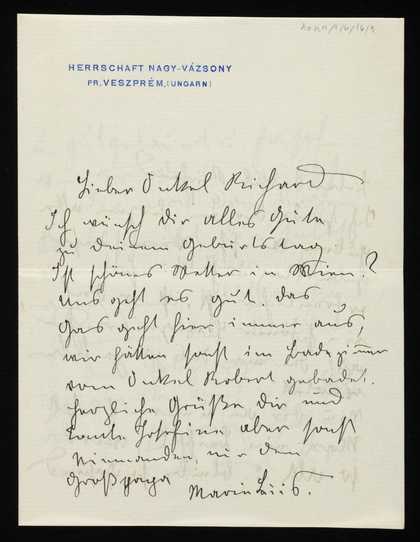 HERRSCHAFT NAGY-VÁZSONY
PR. VESZPRÉM, (UNGARN)
Lieber Onkel Richard
Ich wünsch dir alles Gute
zu deinem Geburtstag
Ist schönes Wetter in Wien?
Uns geht es gut. das
Gas geht hier immer aus,
wir hätten sonst im Badezimmer
vom Onkel Robert gebadet.
Herzliche Grüße dir und
Tante Josefine aber sonst
Niemanden, nur dem
Großpapa